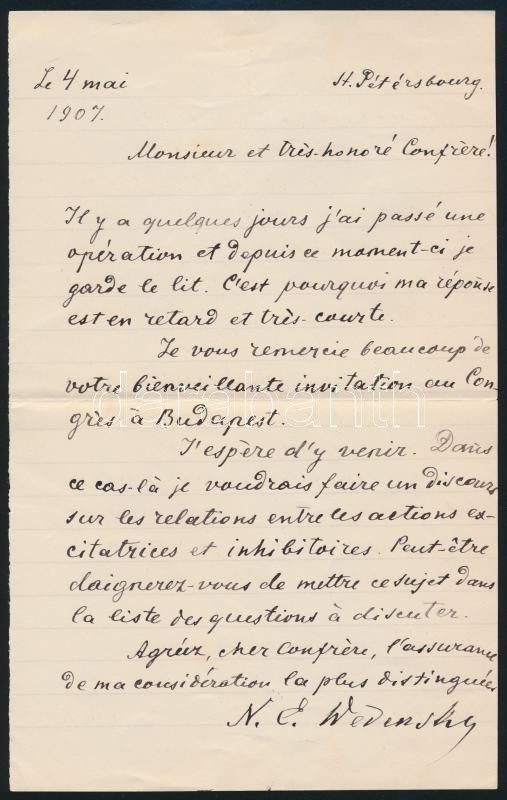 Le 4 mai St. Pétérsbourg.
1907.
Monsieur et très-honoré Confrère!
Il y a quelques jours j'ai passé une
opération et depuis ce moment-ci je
garde le lit. C'est pourquoi ma réponse
est en retard et très-courte.
Je vous remercie beaucoup de
votre bienveillante invitation au Con-
grès à Budapest.
J'espère d'y venir. Dans
ce cas-là je voudrais faire un discours
sur les relations entre les actions ex-
citatrices et inhibitoires. Peut-être
daignerez-vous de mettre ce sujet dans
la liste des questions à discuter.
Agréez, cher Confrère, l'assurance
de ma considération la plus distinguée
N. E. Wedensky
darabanth